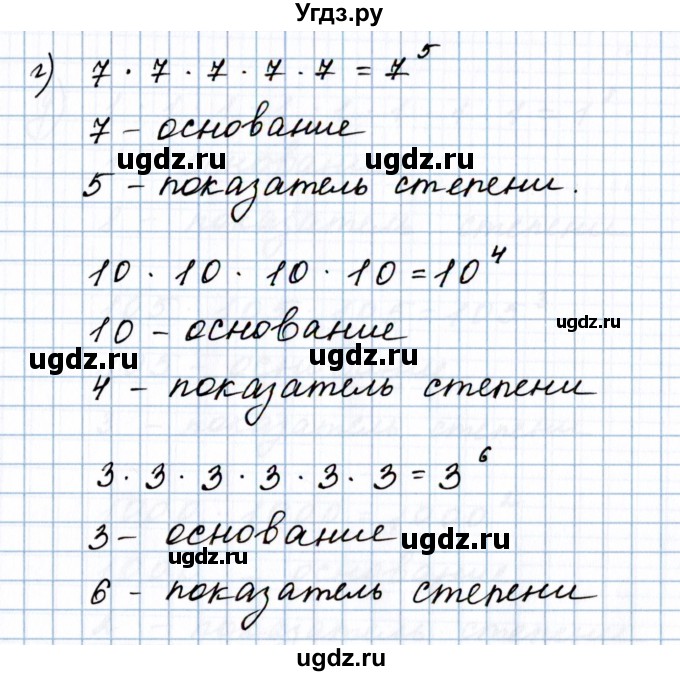 Угдз.ру
г) 7 · 7 · 7 · 7 · 7 = 7⁵
7 – основание
ugdz.ru ugdz.ru
5 – показатель степени.
10 · 10 · 10 · 10 = 10⁴
10 – основание ugdz.ru
ugdz.ru ugdz.ru
4 – показатель степени
3 · 3 · 3 · 3 · 3 · 3 = 3⁶
3 – основание ugdz.ru
ugdz.ru
6 – показатель степени
ugdz.ru